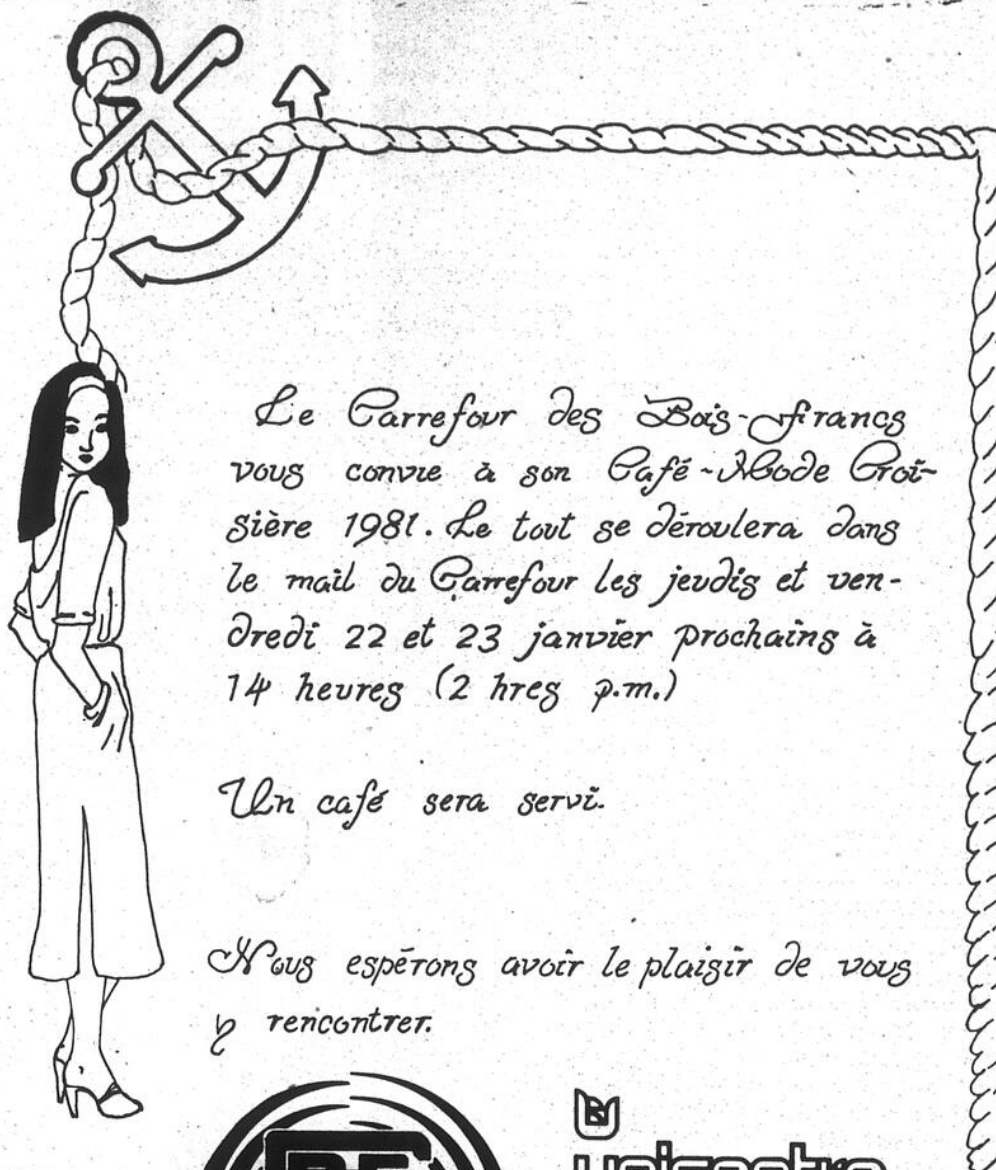 Le Carrefour des Bois-Francs
vous convie à son Café-Mode Croi-
sière 1981. Le tout se déroulera dans
le mail du Carrefour les jeudis et ven-
dredi 22 et 23 janvier prochains à
14 heures (2 hres p.m.)
Un café sera servi.
Nous espérons avoir le plaisir de vous
y rencontrer.